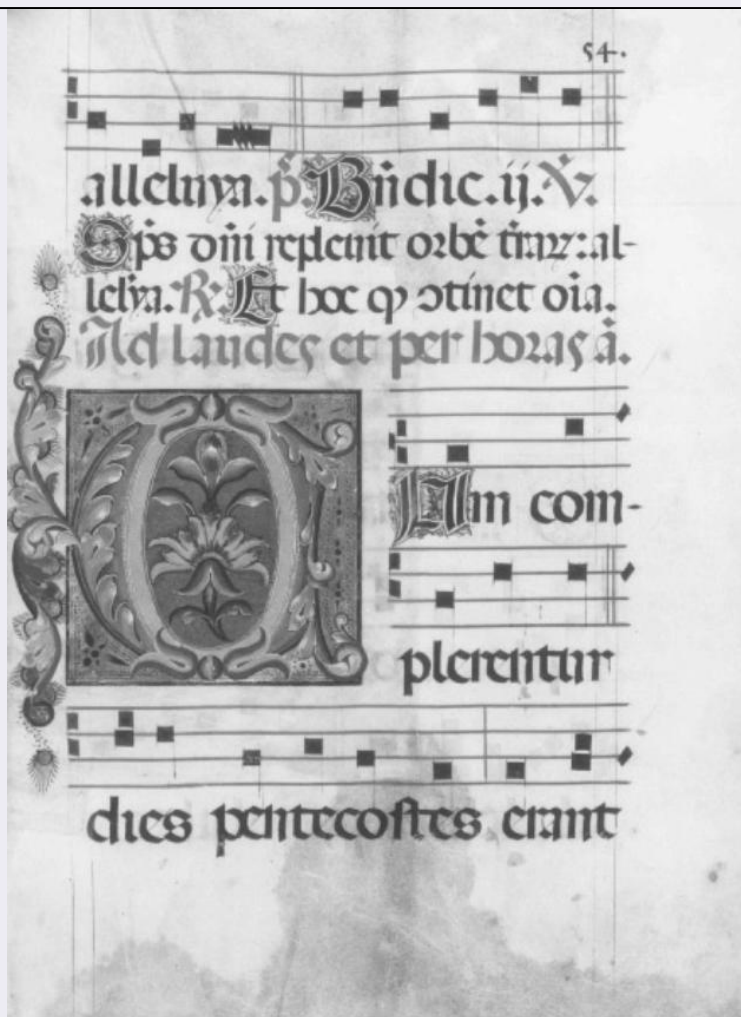 54.
alleluya. p̄s. Bn̄dic. ij. V̄.
Sp̄s dn̄i repleuit orbē t̄rarꝝ: al-
lelya. ℟. Et hoc qꝫ ↄtinet oīa.
Ad laudes et per horas ā.
Cum com-
plerentur
dies pentecostes erant